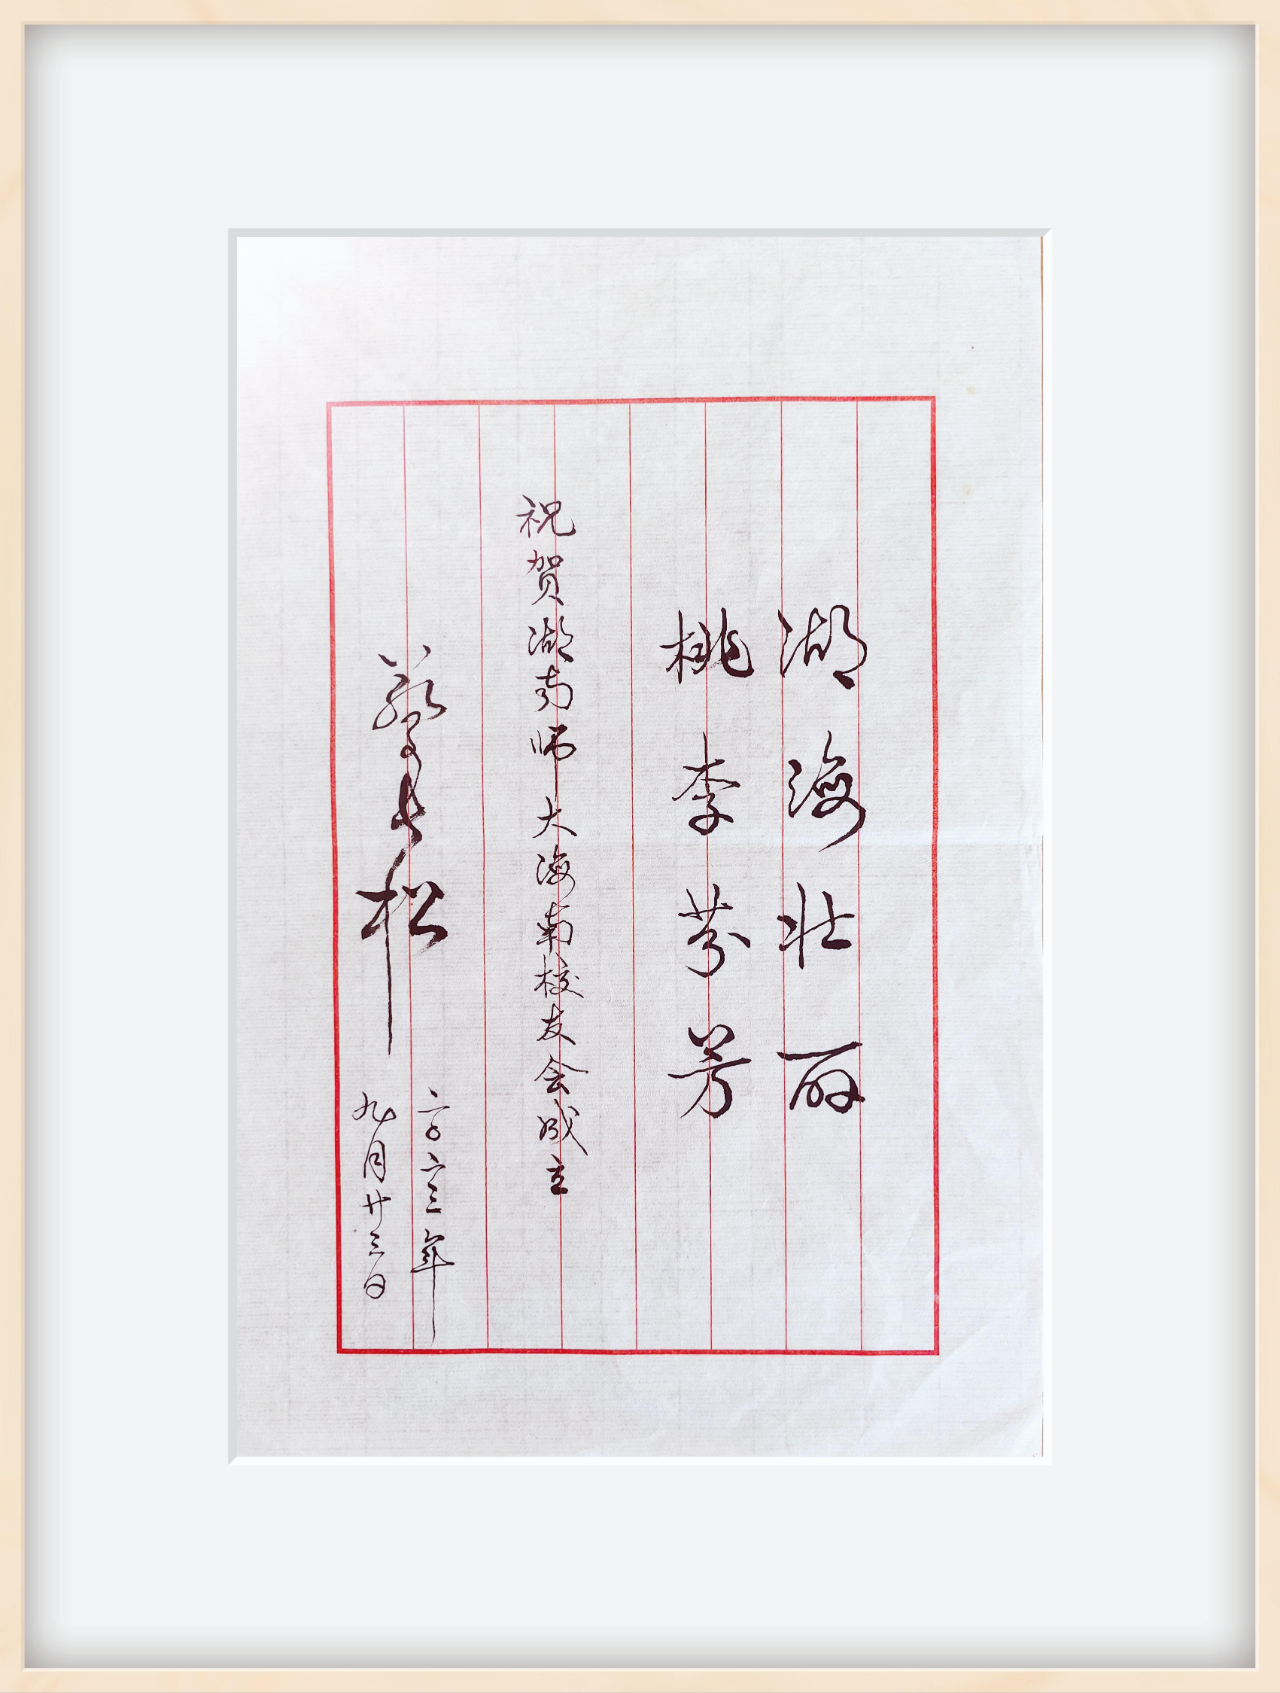 湖海壮丽
桃李芬芳
祝贺湖南师大海南校友会成立
蔡长松
二〇二三年
九月廿三日